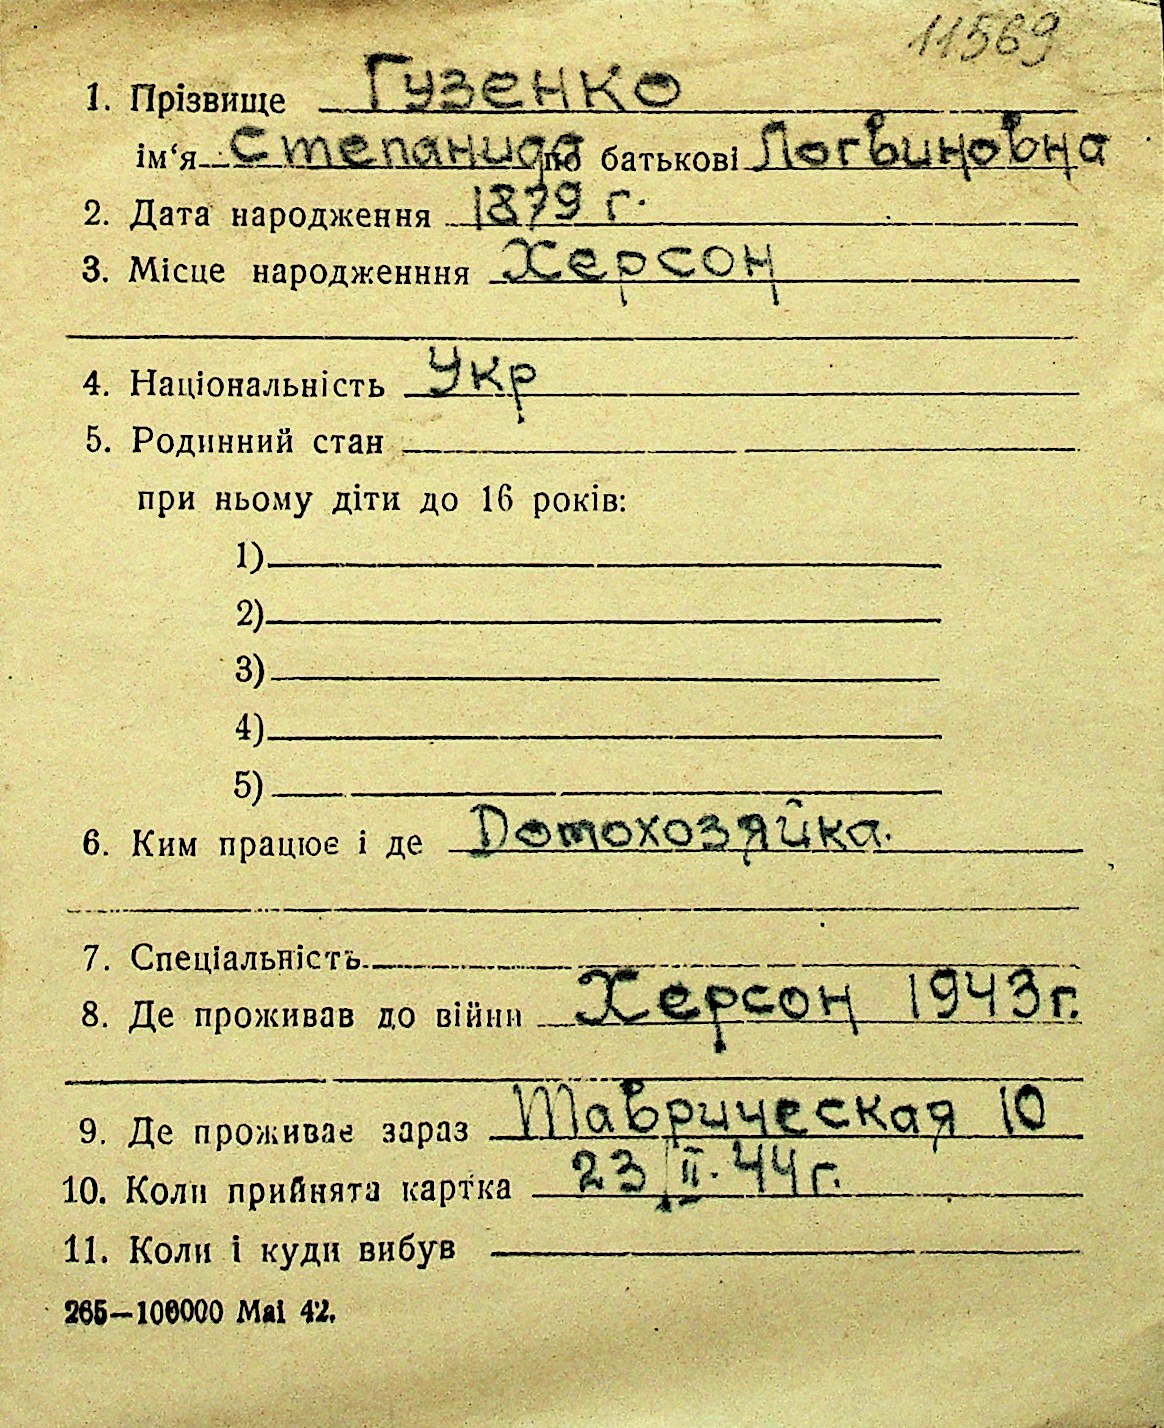 11569
1. Прізвище Гузенко
ім‘я Степанида по батькові Логвиновна
2. Дата народження 1879 г.
3. Місце народженння Херсон
4. Національність Укр
5. Родинний стан
при ньому діти до 16 років:
1)
2)
3)
4)
5)
6. Ким працює і де Домохозяйка.
7. Спеціальність
8. Де проживав до війни Херсон 1943г.
9. Де проживає зараз Таврическая 10
10. Коли прийнята картка 23/II.44г.
11. Коли і куди вибув
265—100000 Mai 42.